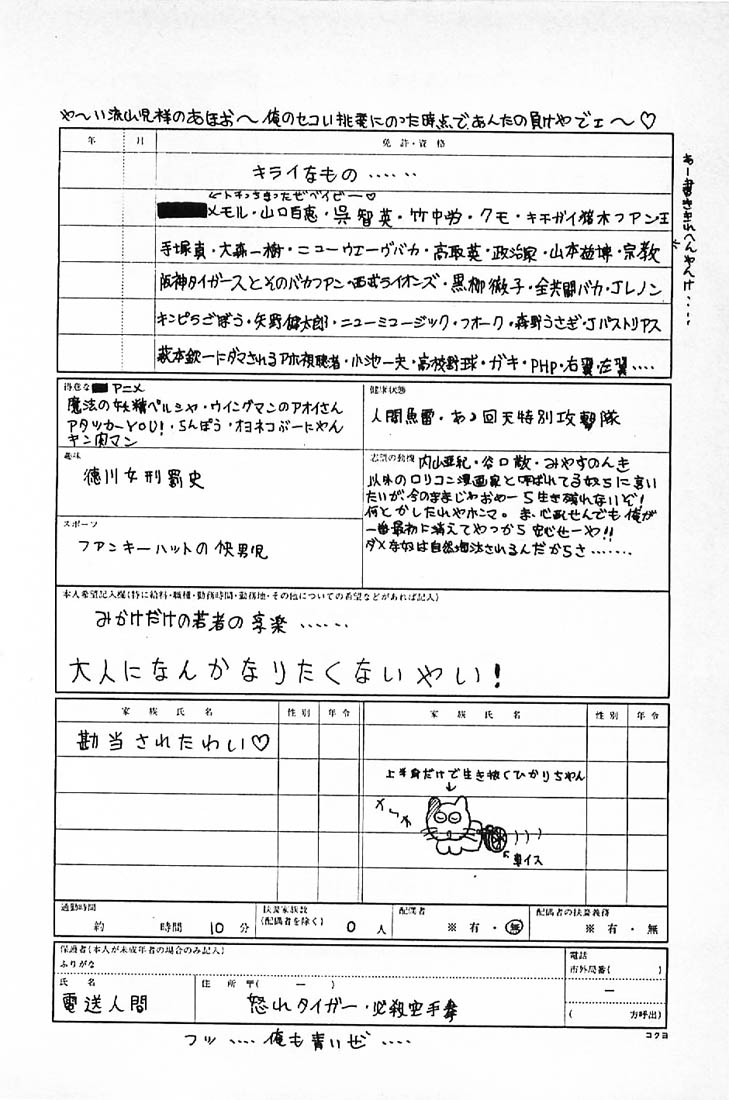 や〜い流山児様のあほお〜俺のセコい挑発にのった時点で、あんたの負けやでェ〜♡
年 月 免許・資格
キライなもの‥‥‥
←トチっちまったぜベイビー♡
メモル・山口百恵・呉智英・竹中労・クモ・キチガイ猪木ファン王
手塚眞・大森一樹・ニューウェーヴバカ・高取英・政治家・山本益博・宗教
阪神タイガースとそのバカファン・西武ライオンズ・黒柳徹子・全共闘バカ・Jレノン
キンピラごぼう・矢野健太郎・ニューミュージック・フォーク・森野うさぎ・Jパストリアス
萩本欽一にダマされるアホ視聴者・小池一夫・高校野球・ガキ・PHP・右翼・左翼‥‥
あー書ききれへんやんけ‥‥
得意な アニメ
魔法の妖精ペルシャ・ウイングマンのアオイさん
アタッカーYOU!・らんぽう・オヨネコぶーにゃん
キン肉マン
健康状態
人間魚雷・あゝ回天特別攻撃隊
趣味
徳川女刑罰史
志望の動機
内山亜紀・谷口敬・みやすのんき
以外のロリコン漫画家と呼ばれてる奴らに言い
たいが今のままじゃおめーら生き残れないぞ!
何とかしたれやホンマ。ま、心配せんでも俺が
一番最初に消えてやっから安心せーや!!
ダメな奴は自然淘汰されるんだからさ‥‥‥
スポーツ
ファンキーハットの快男児
本人希望記入欄(特に給料・職種・勤務時間・勤務地・その他についての希望などがあれば記入)
みかけだけの若者の享楽‥‥‥
大人になんかなりたくないやい!
家族氏名 性別 年令 家族氏名 性別 年令
勘当されたわい♡
上半身だけで生き抜くひかりちゃん
↓
←車イス
通勤時間
約 時間 10分
扶養家族数
(配偶者を除く) 0人
配偶者
※有・無
配偶者の扶養義務
※有・無
保護者(本人が未成年者の場合のみ記入)
ふりがな
氏名
電送人間
住所〒( ー )
怒れタイガー・必殺空手拳
電話
市外局番( )
ー
( 方呼出)
コクヨ
フッ‥‥俺も青いぜ‥‥